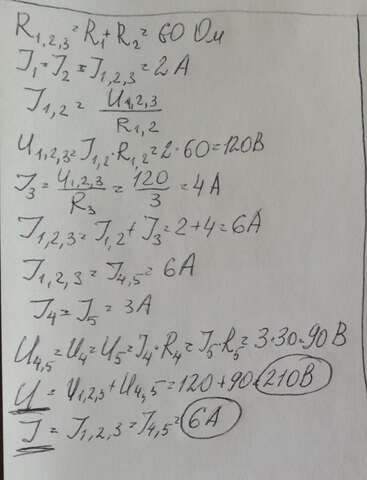 R1,2,3 = R1 + R2 = 60 Ом
I1 = I2 = I1,2,3 = 2 А
I1,2 = U1,2,3 / R1,2
U1,2,3 = I1,2 · R1,2 = 2 · 60 = 120В
I3 = U1,2,3 / R3 = 120 / 3 = 4 А
I1,2,3 = I1,2 + I3 = 2 + 4 = 6А
I1,2,3 = I4,5 = 6А
I4 = I5 = 3А
U4,5 = U4 = U5 = I4 · R4 = I5 · R5 = 3 · 30 = 90 В
U = U1,2,3 + U4,5 = 120 + 90 = 210В
I = I1,2,3 = I4,5 = 6А